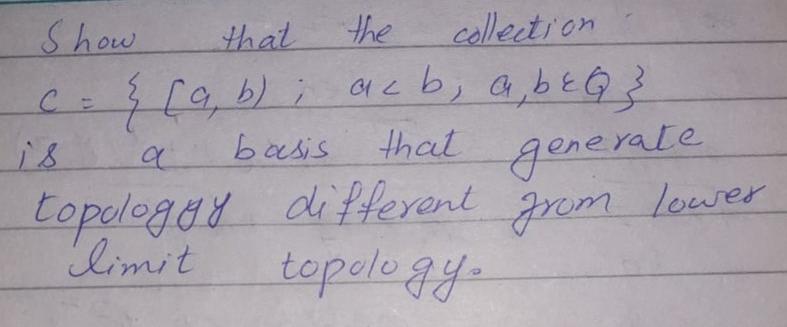 Show that the collection
C = { [a, b) ; a < b, a, b ε Q }
is a basis that generate
topologgy different from lower
limit topology.